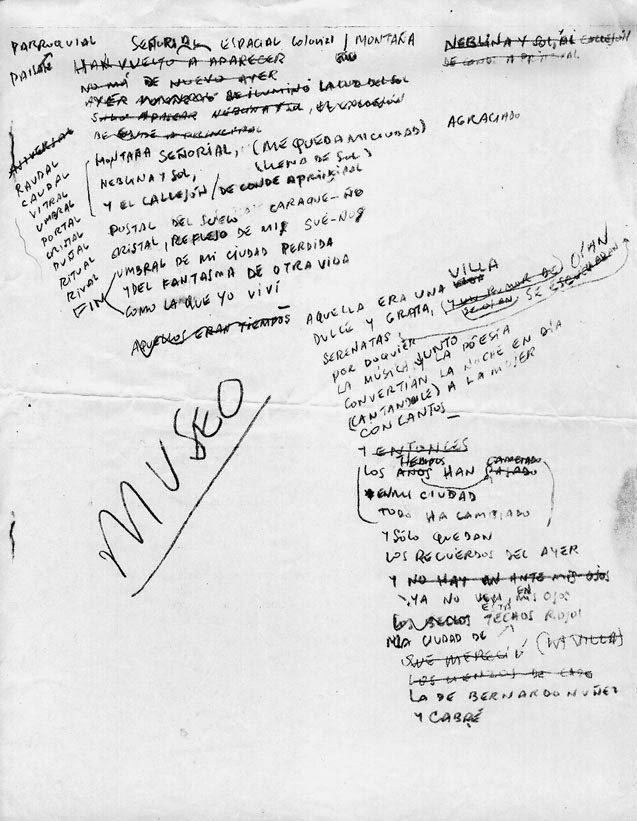 PARROQUIAL SEÑORIAL ESPACIAL COLONIAL / MONTAÑA
HAN VUELTO A APARECER
NO MÁ DE NUEVO AYER
NEBLINA Y SOL, EL CALLEJÓN
DE CONDE A PRINCIPAL
RAUDAL
CAUDAL
VITRAL
UMBRAL
PORTAL
CRISTAL
RITUAL
RIVAL
FIN
MONTAÑA SEÑORIAL, (ME QUEDA MI CIUDAD) AGRACIADO
NEBLINA Y SOL, (LLENA DE SOL)
Y EL CALLEJÓN / DE CONDE A PRINCIPAL
POSTAL DEL SUELO CARAQUE-ÑO
CRISTAL, REFLEJO DE MIS SUE-ÑOS
UMBRAL DE MI CIUDAD PERDIDA
Y DEL FANTASMA DE OTRA VIDA
COMO LA QUE YO VIVÍ
AQUELLOS ERAN TIEMPOS
AQUELLA ERA UNA VILLA
DULCE Y GRATA, (Y UN RUMOR DE) OÍAN
SERENATAS, SE ESCUCHABAN
POR DOQUIER
LA MÚSICA JUNTO Y LA POESÍA
CONVERTÍAN LA NOCHE EN DÍA
(CANTANDOLE) A LA MUJER
CON CANTOS
MUSEO
Y ENTONCES
TIEMPOS CAMBIADO
LOS AÑOS HAN PASADO
EN MI CIUDAD
TODO HA CAMBIADO
Y SÓLO QUEDAN
LOS RECUERDOS DEL AYER
Y NO HAY AN ANTE MIS OJOS
YA NO VEN, EN MIS OJOS
LOS BELLOS TECHOS ROJOS
LA CIUDAD DE
QUE MERECIÓ (LA VILLA)
LOS LIENZOS DE
LA DE BERNARDO NUÑEZ
Y CABRÉ